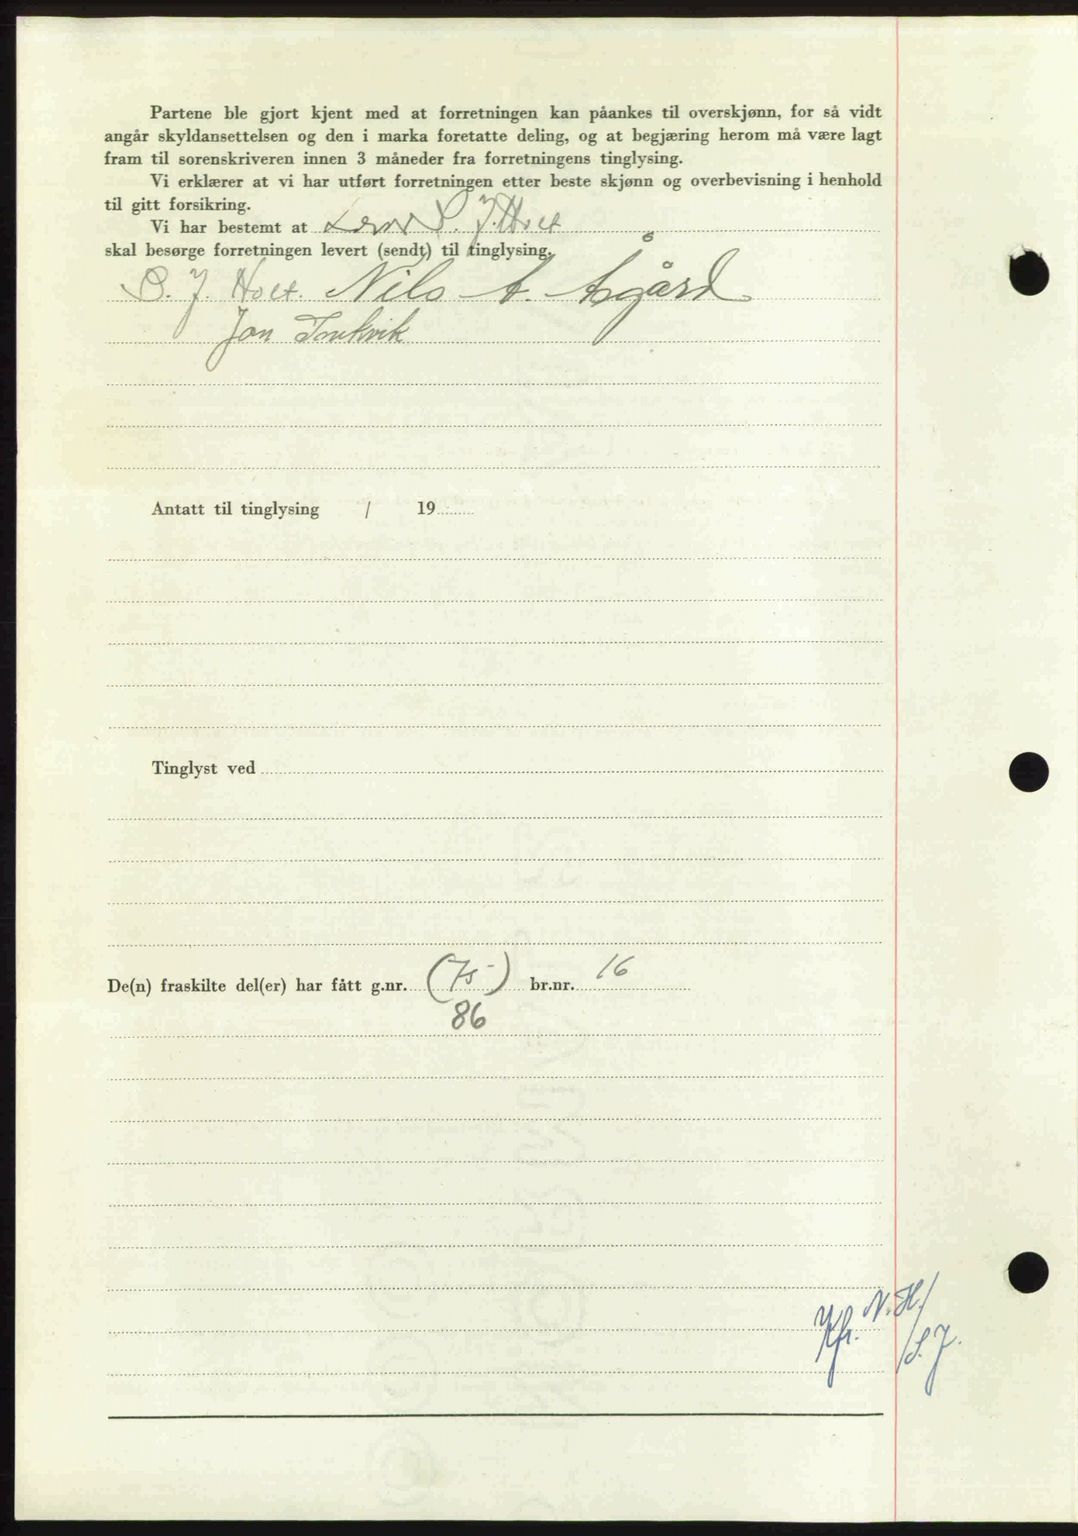 Partene ble gjort kjent med at forretningen kan påankes til overskjønn, for så vidt
angår skyldansettelsen og den i marka foretatte deling, og at begjæring herom må være lagt
fram til sorenskriveren innen 3 måneder fra forretningens tinglysing.
Vi erklærer at vi har utført forretningen etter beste skjønn og overbevisning i henhold
til gitt forsikring.
Vi har bestemt at S. J. Holt
skal besørge forretningen levert (sendt) til tinglysing.
S. J. Holt. Nils A. Åsgård
Jon
Antatt til tinglysing / 19
Tinglyst ved
De(n) fraskilte del(er) har fått g.nr. (75) br.nr. 16
86
Kfr. N.H./
/S.J.